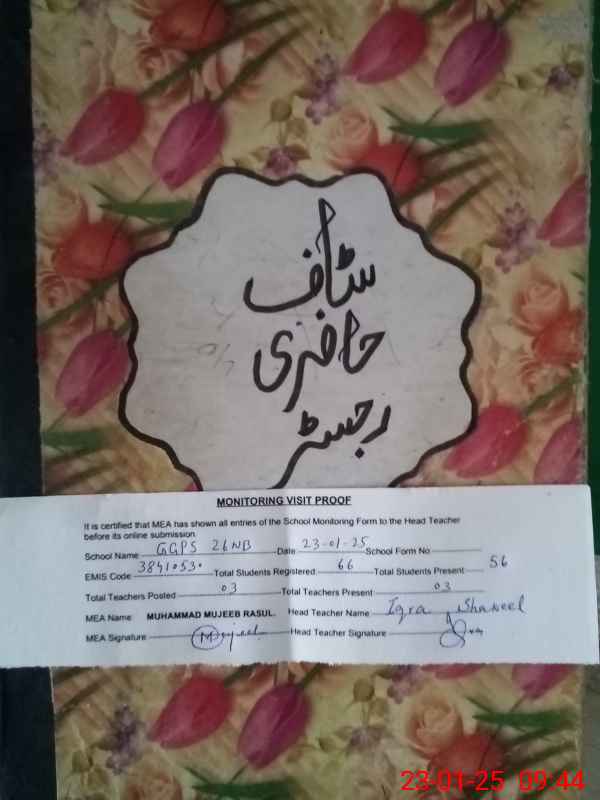 سٹاف
حاضری
رجسٹر
MONITORING VISIT PROOF
It is certified that MEA has shown all entries of the School Monitoring Form to the Head Teacher
before its online submission.
School Name GGPS 26NB Date 23-01-25 School Form No
EMIS Code 38410530 Total Students Registered 66 Total Students Present 56
Total Teachers Posted 03 Total Teachers Present 03
MEA Name: MUHAMMAD MUJEEB RASUL. Head Teacher Name Iqra Shakeel
MEA Signature Mujeeb Head Teacher Signature
23-01-25 09:44